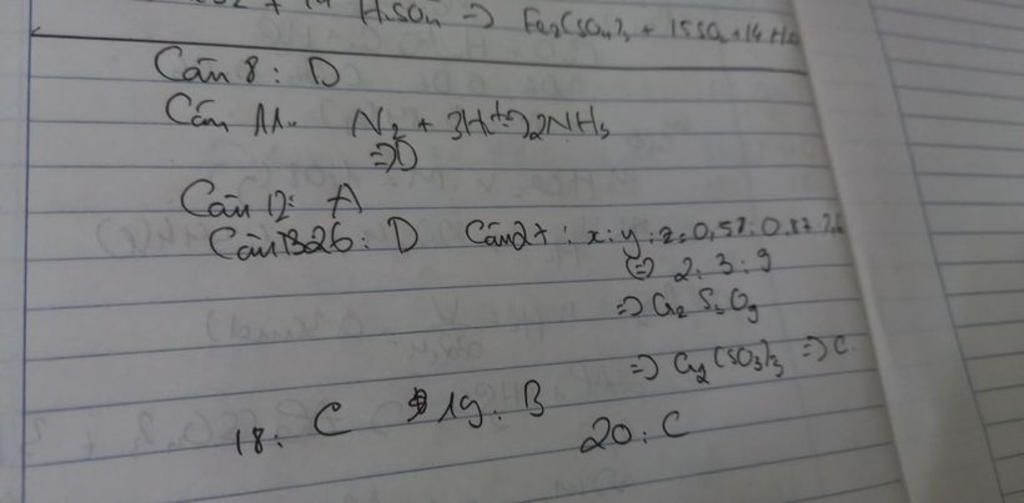 H₂SO₄ => Fe₂(SO₄)₃ + 15SO₂ + 14 H₂
Câu 8 : D
Câu 11. N₂ + 3H₂ 2NH₃
=> D
Câu 12: A
Câu 26 : D Câu 27 : x : y : z = 0,58 : 0,87
<=> 2 : 3 : 9
=> S₃ O₉
=> (SO₃)₃ => C
18 : C 19 : B 20 : C